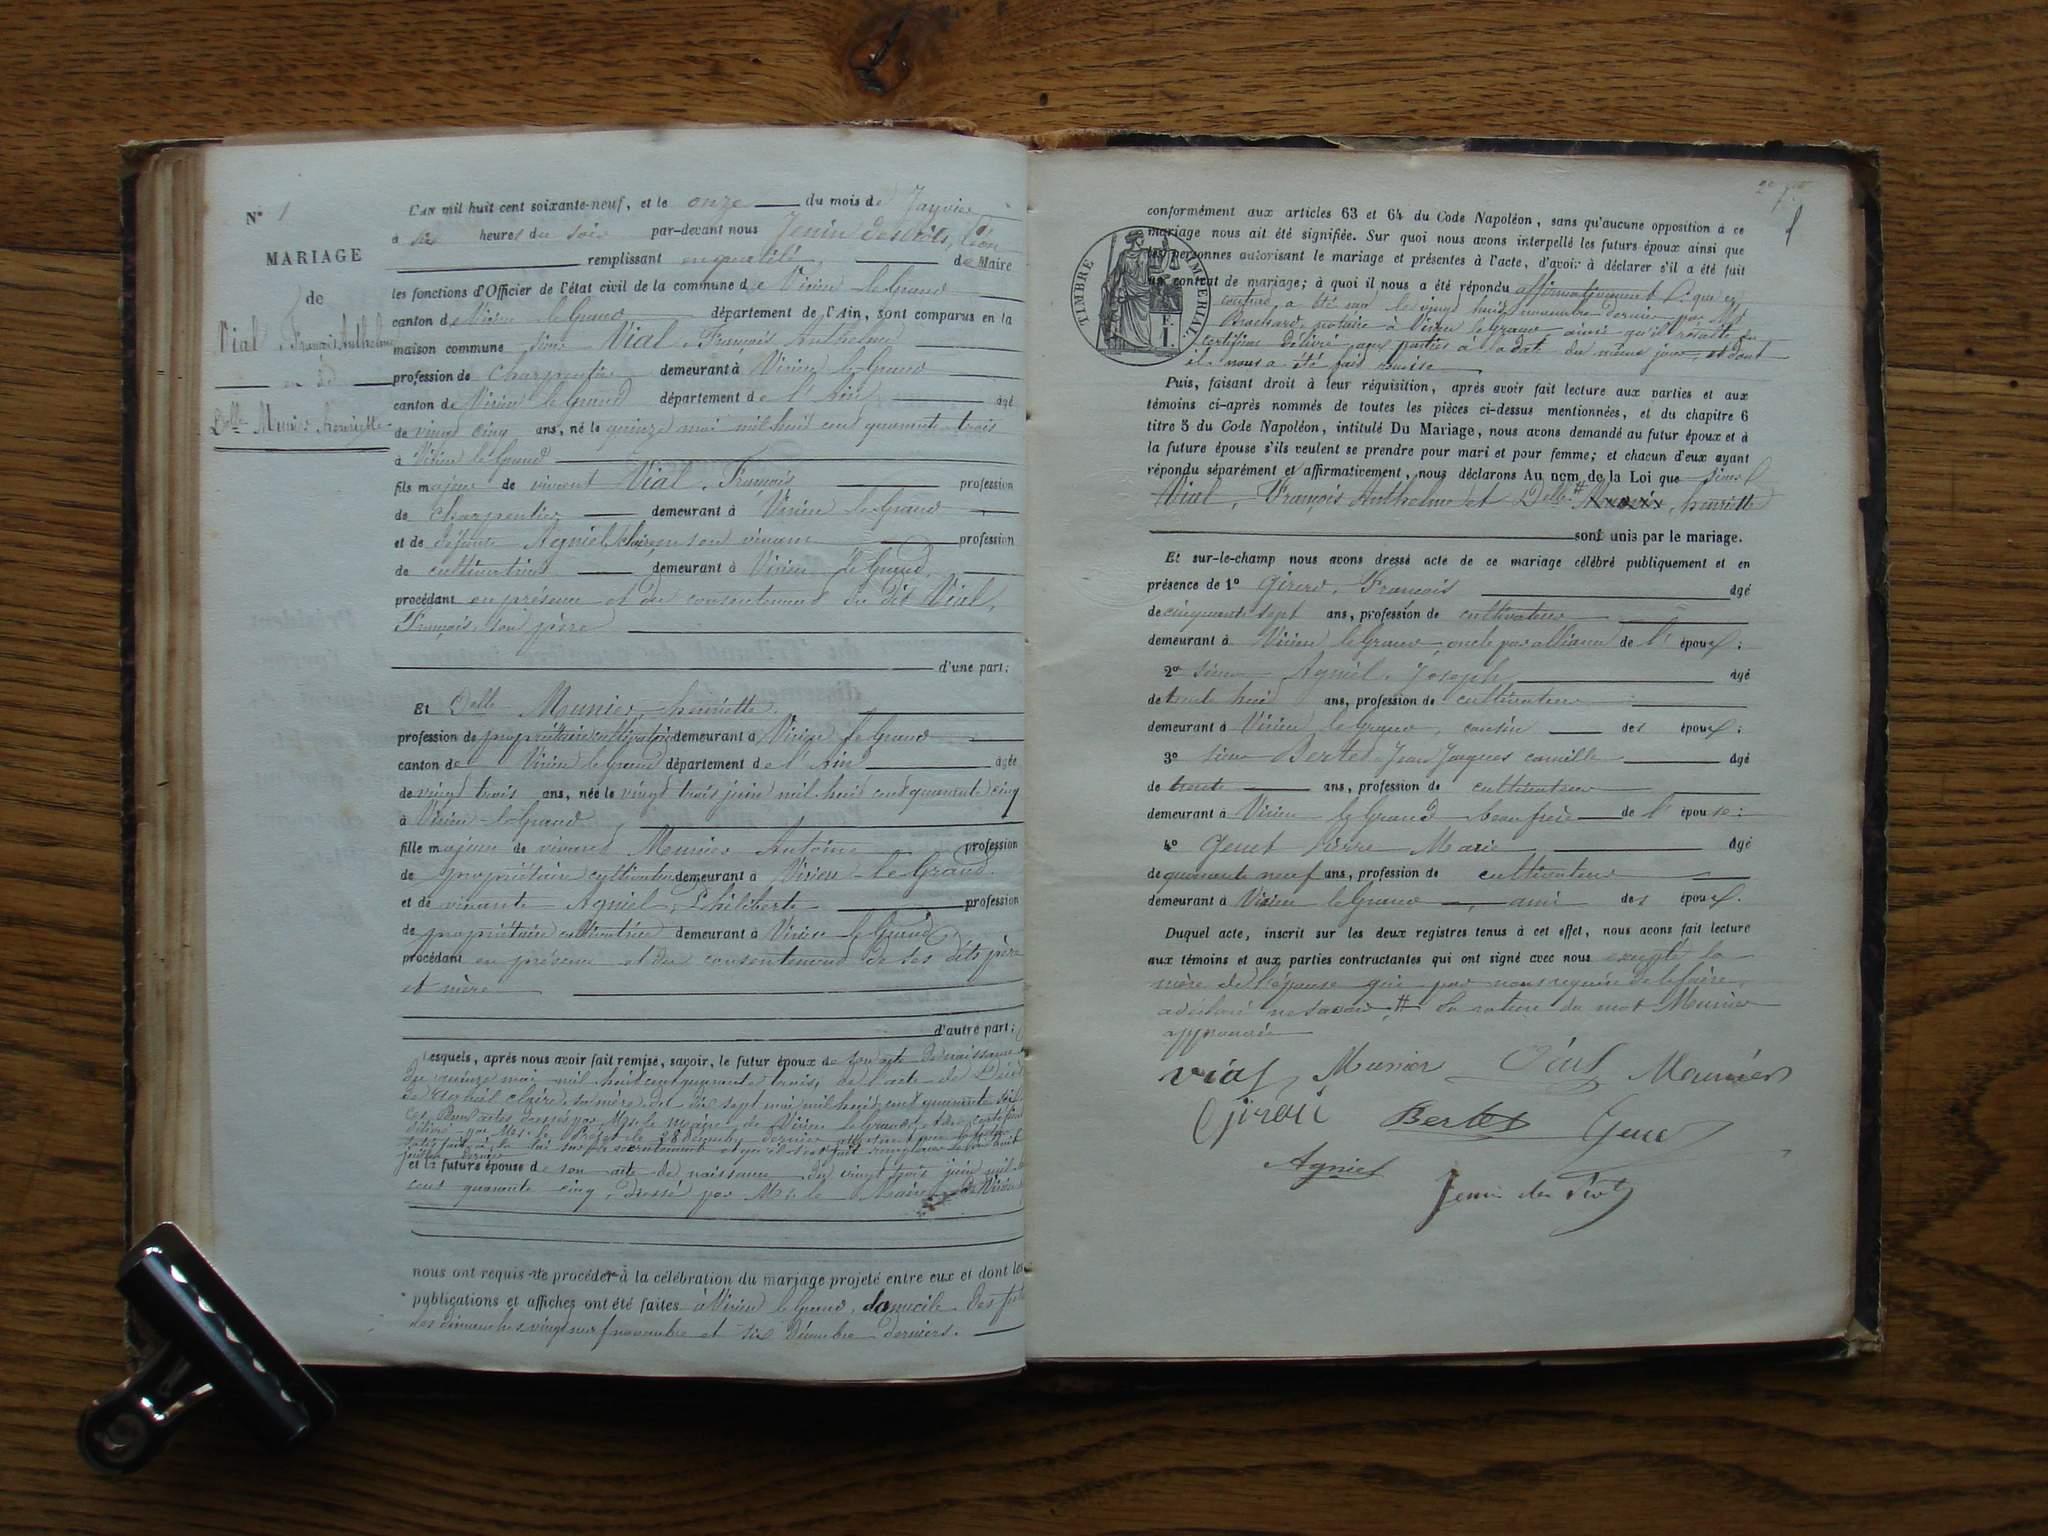 N° 1
MARIAGE
de
Vial, François Anthelme
et de
Delle Munier henriette
L'AN mil huit cent soixante-neuf, et le onze du mois de Janvier
à six heures du soir par-devant nous Jenin des Prôts, Léon
remplissant en qualité de Maire
les fonctions d'Officier de l'état civil de la commune de Virieu le Grand
canton de Virieu le Grand département de l'Ain, sont comparus en la
maison commune sieur Vial, François Anthelme
profession de charpentier demeurant à Virieu le Grand
canton de Virieu le Grand département de l'Ain âgé
de vingt cinq ans, né le quinze mai mil huit cent quarante trois
à Virieu le Grand
fils majeur de vivant Vial, François profession
de charpentier demeurant à Virieu le Grand
et de défunte Agniel Claire en son vivant profession
de cultivatrice demeurant à Virieu le Grand,
procédant en présence et du consentement du dit Vial,
François, son père
d'une part;
Et Delle Munier, henriette
profession de propriétaire cultivatrice demeurant à Virieu le Grand
canton de Virieu le Grand département de l'Ain âgée
de vingt trois ans, née le vingt trois juin mil huit cent quarante cinq
à Virieu le Grand
fille majeure de vivant Munier Antoine profession
de propriétaire cultivateur demeurant à Virieu le Grand
et de vivante Agniel, Philiberte profession
de propriétaire cultivatrice demeurant à Virieu le Grand
procédant en présence et du consentement de ses dits père
et mère
d'autre part;
Lesquels, après nous avoir fait remise, savoir, le futur époux de son acte de naissance
du quinze mai mil huit cent quarante trois, de l'acte de décès
de Agniel Claire, sa mère, du dix sept mai mil huit cent quarante
délivré par Mr. le Préfet le 28
juillet dernier
et la future épouse de son acte de naissance du vingt trois juin mil
cent quarante cinq, dressé par Mr le Maire de Virieu
nous ont requis de procéder à la célébration du mariage projeté entre eux et dont les
publications et affiches ont été faites à Virieu le Grand, domicile des
les dimanches vingt neuf novembre et six décembre derniers.
conformément aux articles 63 et 64 du Code Napoléon, sans qu'aucune opposition à ce
mariage nous ait été signifiée. Sur quoi nous avons interpellé les futurs époux ainsi que
les personnes autorisant le mariage et présentes à l'acte, d'avoir à déclarer s'il a été fait
un contrat de mariage; à quoi il nous a été répondu affirmativement & que ce
contrat a été reçu le vingt huit novembre dernier par Me
Brachard, notaire à Virieu le Grand ainsi qu'il résulte du
certificat délivré aux parties à la date du même jour, et dont
il nous a été fait remise
TIMBRE IMPERIAL
1 F.
Puis, faisant droit à leur réquisition, après avoir fait lecture aux parties et aux
témoins ci-après nommés de toutes les pièces ci-dessus mentionnées, et du chapitre 6
titre 5 du Code Napoléon, intitulé Du Mariage, nous avons demandé au futur époux et à
la future épouse s'ils veulent se prendre pour mari et pour femme; et chacun d'eux ayant
répondu séparément et affirmativement, nous déclarons Au nom de la Loi que sieur
Vial, François Anthelme et Delle Munier, henriette
sont unis par le mariage.
Et sur-le-champ nous avons dressé acte de ce mariage célébré publiquement et en
présence de 1° Girerd, François âgé
de cinquante sept ans, profession de cultivateur
demeurant à Virieu le Grand oncle par alliance de l' époux;
2° sieur Agniel, Joseph âgé
de trente huit ans, profession de cultivateur
demeurant à Virieu le Grand, cousin des époux;
3° sieur Bertet, Jean Jacques camille âgé
de trente ans, profession de cultivateur
demeurant à Virieu le Grand beau frère de l' épouse;
4° Genet Pierre Marie âgé
de quarante neuf ans, profession de cultivateur
demeurant à Virieu le Grand, ami des époux.
Duquel acte, inscrit sur les deux registres tenus à cet effet, nous avons fait lecture
aux témoins et aux parties contractantes qui ont signé avec nous excepté la
mère de l'épouse qui par nous requise de le faire,
a déclaré ne savoir # La rature du mot Munier
approuvée
Vial Munier Vial Meunier
Bertet Genet
Agniel
Jenin des Prots